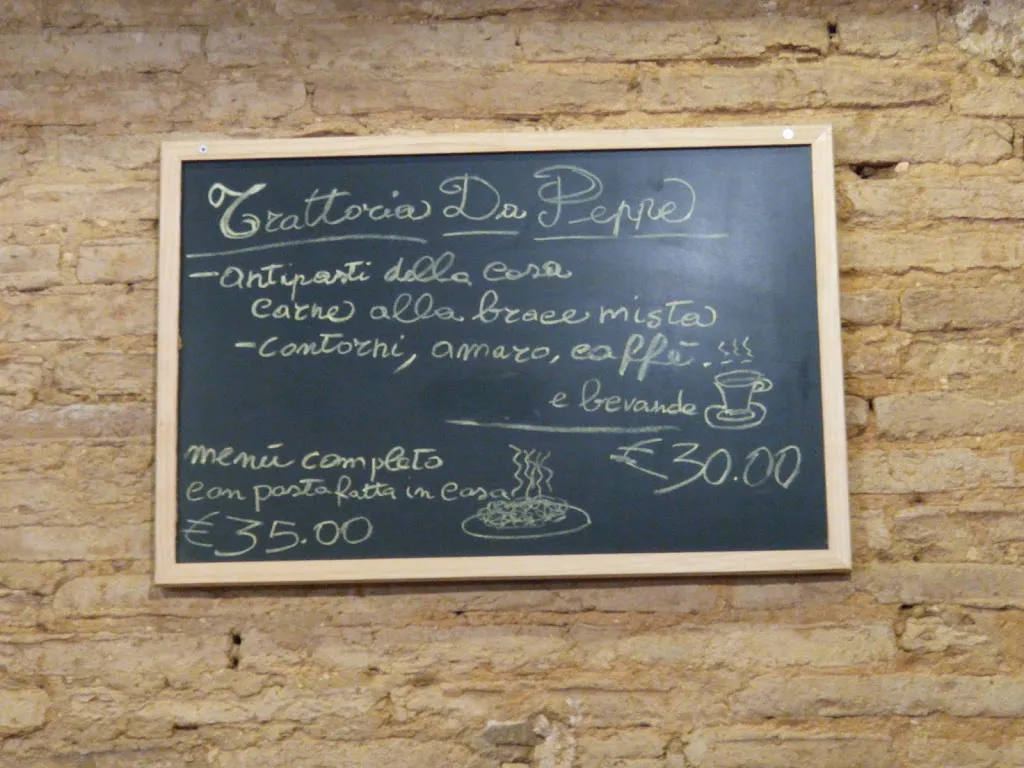 Trattoria Da Peppe
- antipasti della casa
carne alla brace mista
- contorni, amaro, caffè.
e bevande
€30.00
menù completo
con pasta fatta in casa
€35.00